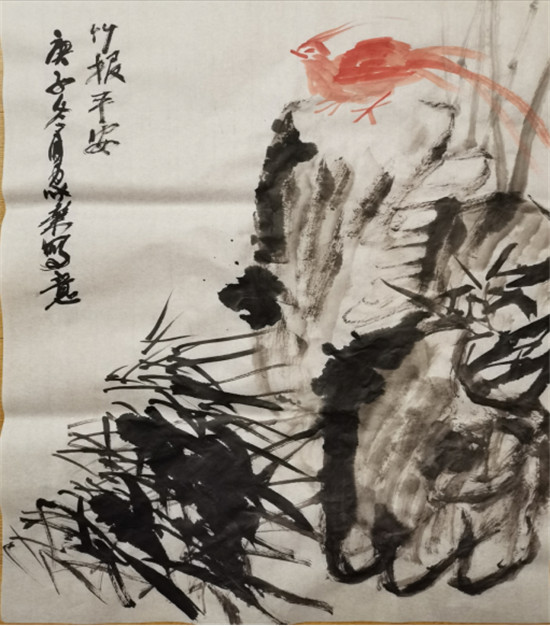 竹报平安
庚子冬月
写意